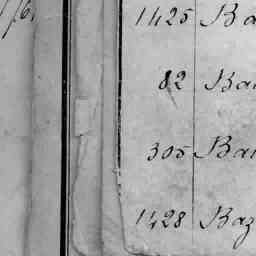 1425 Ba
82 Ba
305 Bar
1428 Baz